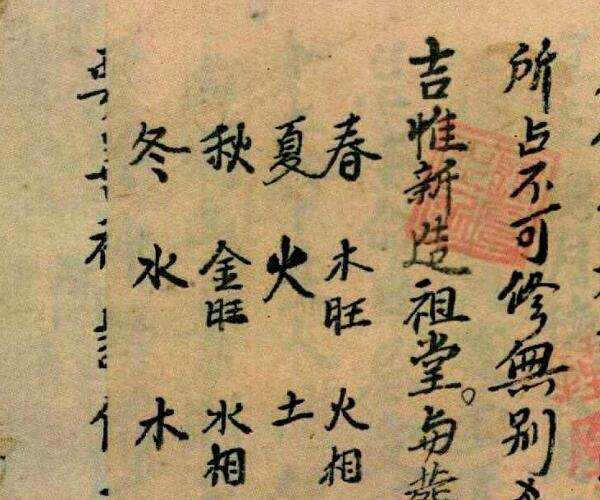 所占不可修無別
吉惟新造祖堂。與
春 木旺 火相
夏 火 土
秋 金旺 水相
冬 水 木